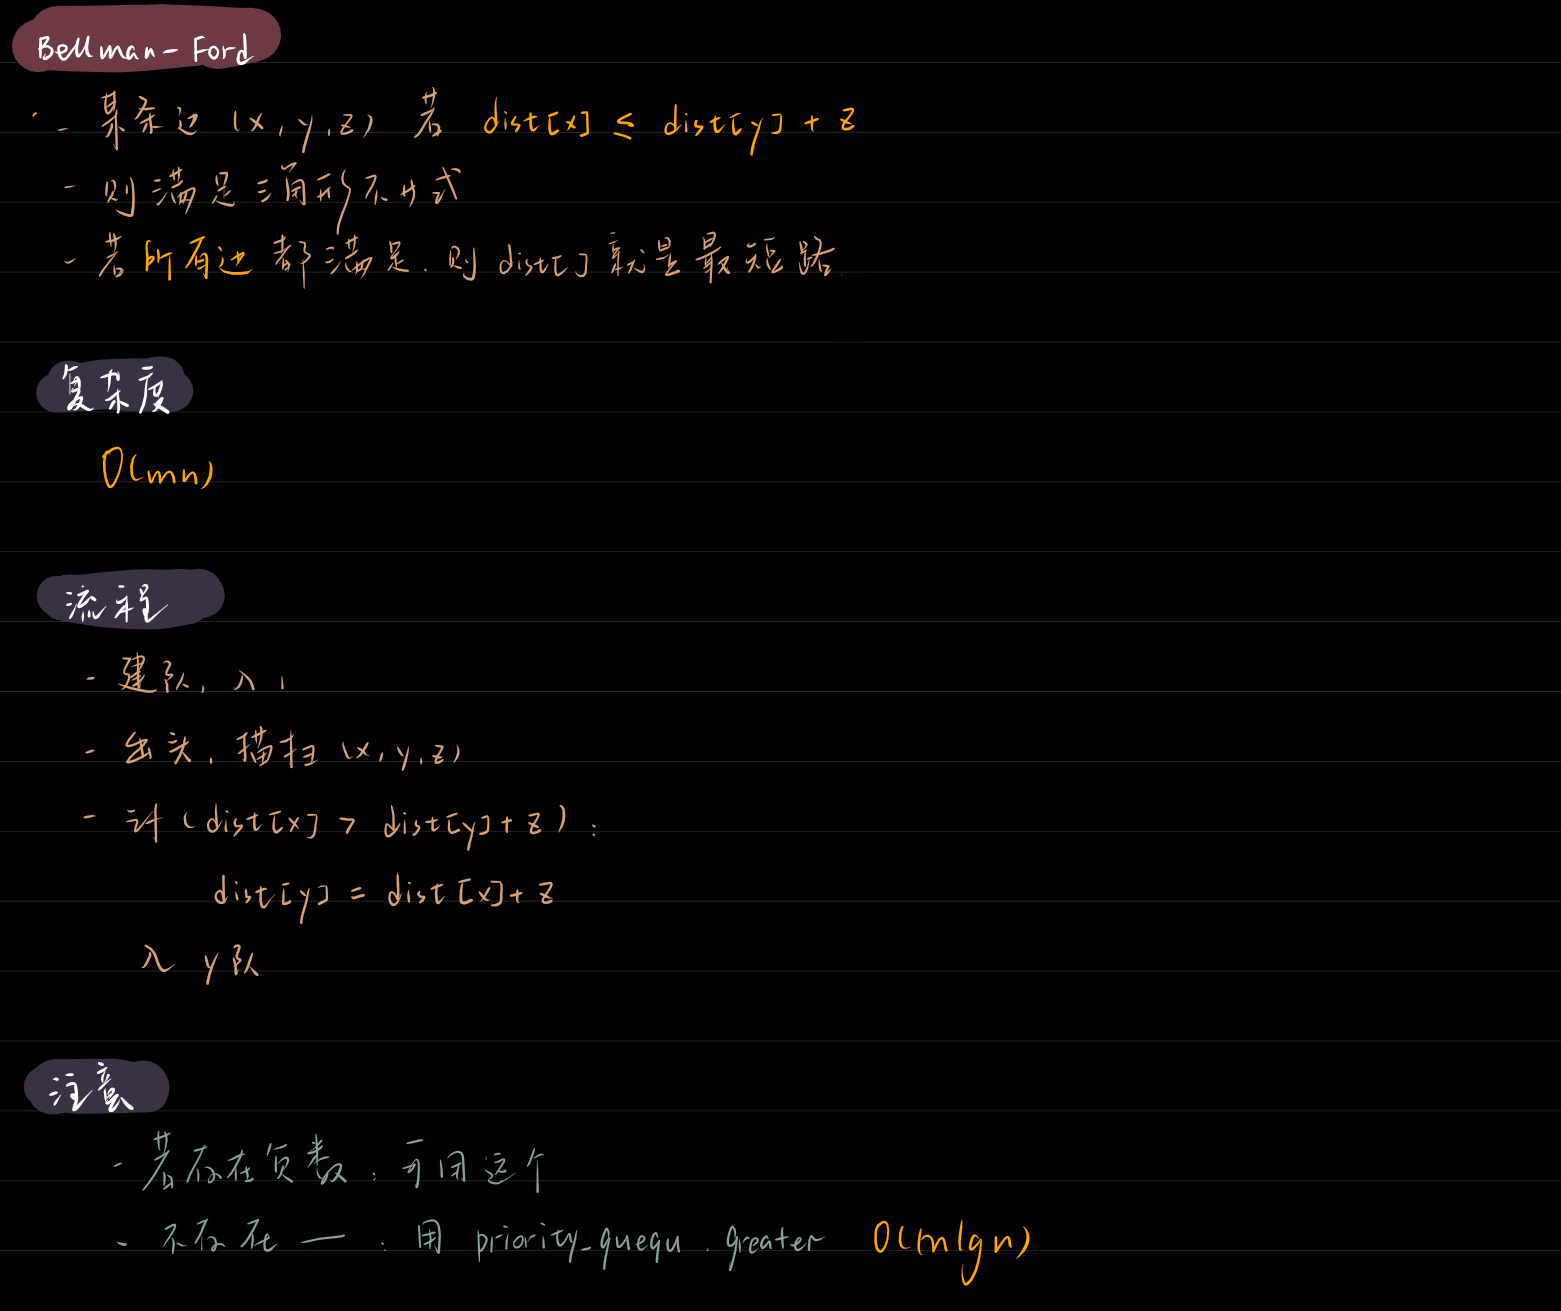 Bellman-Ford
- 某条边 (x, y, z) 若 dist[x] ≤ dist[y] + z
- 则满足三角形不等式
- 若所有边都满足, 则 dist[] 就是最短路.
复杂度
O(mn)
流程
- 建队, 入 1
- 出头, 描扫 (x, y, z)
- (dist[x] > dist[y] + z) :
dist[y] = dist[x] + z
入 y 队
注意
- 若存在负数 : 可用这个
- 不存在 — : 用 priority_ququ . greater O(mlgn)